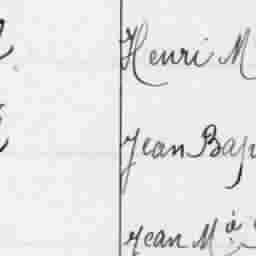 Henri M
Jean Bap
Jean M